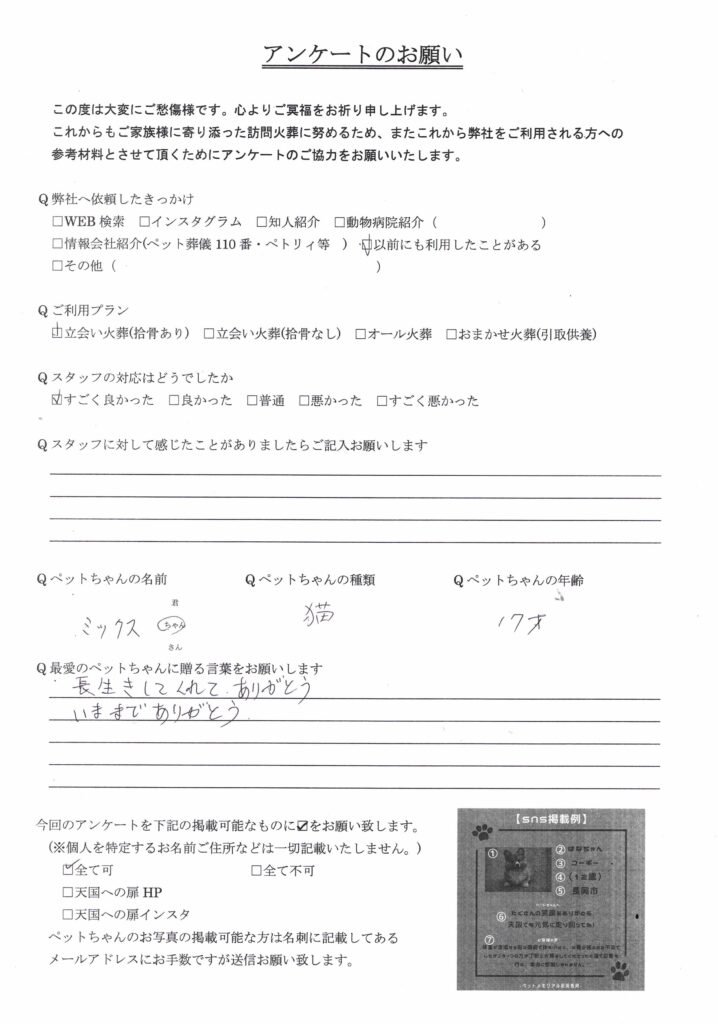 アンケートのお願い
この度は大変にご愁傷様です。心よりご冥福をお祈り申し上げます。
これからもご家族様に寄り添った訪問火葬に努めるため、またこれから弊社をご利用される方への
参考材料とさせて頂くためにアンケートのご協力をお願いいたします。
Q 弊社へ依頼したきっかけ
□WEB 検索 □インスタグラム □知人紹介 □動物病院紹介（ ）
□情報会社紹介(ペット葬儀 110 番・ペトリィ等 ） ☑以前にも利用したことがある
□その他（ ）
Q ご利用プラン
☑立会い火葬(拾骨あり) □立会い火葬(拾骨なし) □オール火葬 □おまかせ火葬(引取供養)
Q スタッフの対応はどうでしたか
☑すごく良かった □良かった □普通 □悪かった □すごく悪かった
Q スタッフに対して感じたことがありましたらご記入お願いします
Q ペットちゃんの名前 Q ペットちゃんの種類 Q ペットちゃんの年齢
君
ミックス ちゃん 猫 17才
さん
Q 最愛のペットちゃんに贈る言葉をお願いします
長生きしてくれて、ありがとう
いままでありがとう
今回のアンケートを下記の掲載可能なものに☑をお願い致します。
(※個人を特定するお名前ご住所などは一切記載いたしません。)
☑全て可 □全て不可
□天国への扉 HP
□天国への扉インスタ
ペットちゃんのお写真の掲載可能な方は名刺に記載してある
メールアドレスにお手数ですが送信お願い致します。
【sns掲載例】
① ② はなちゃん
③ コーギー
④ (12歳)
⑤ 長岡市
⑥ たくさんの笑顔をありがとう
天国でも元気に走り回ってね!
⑦